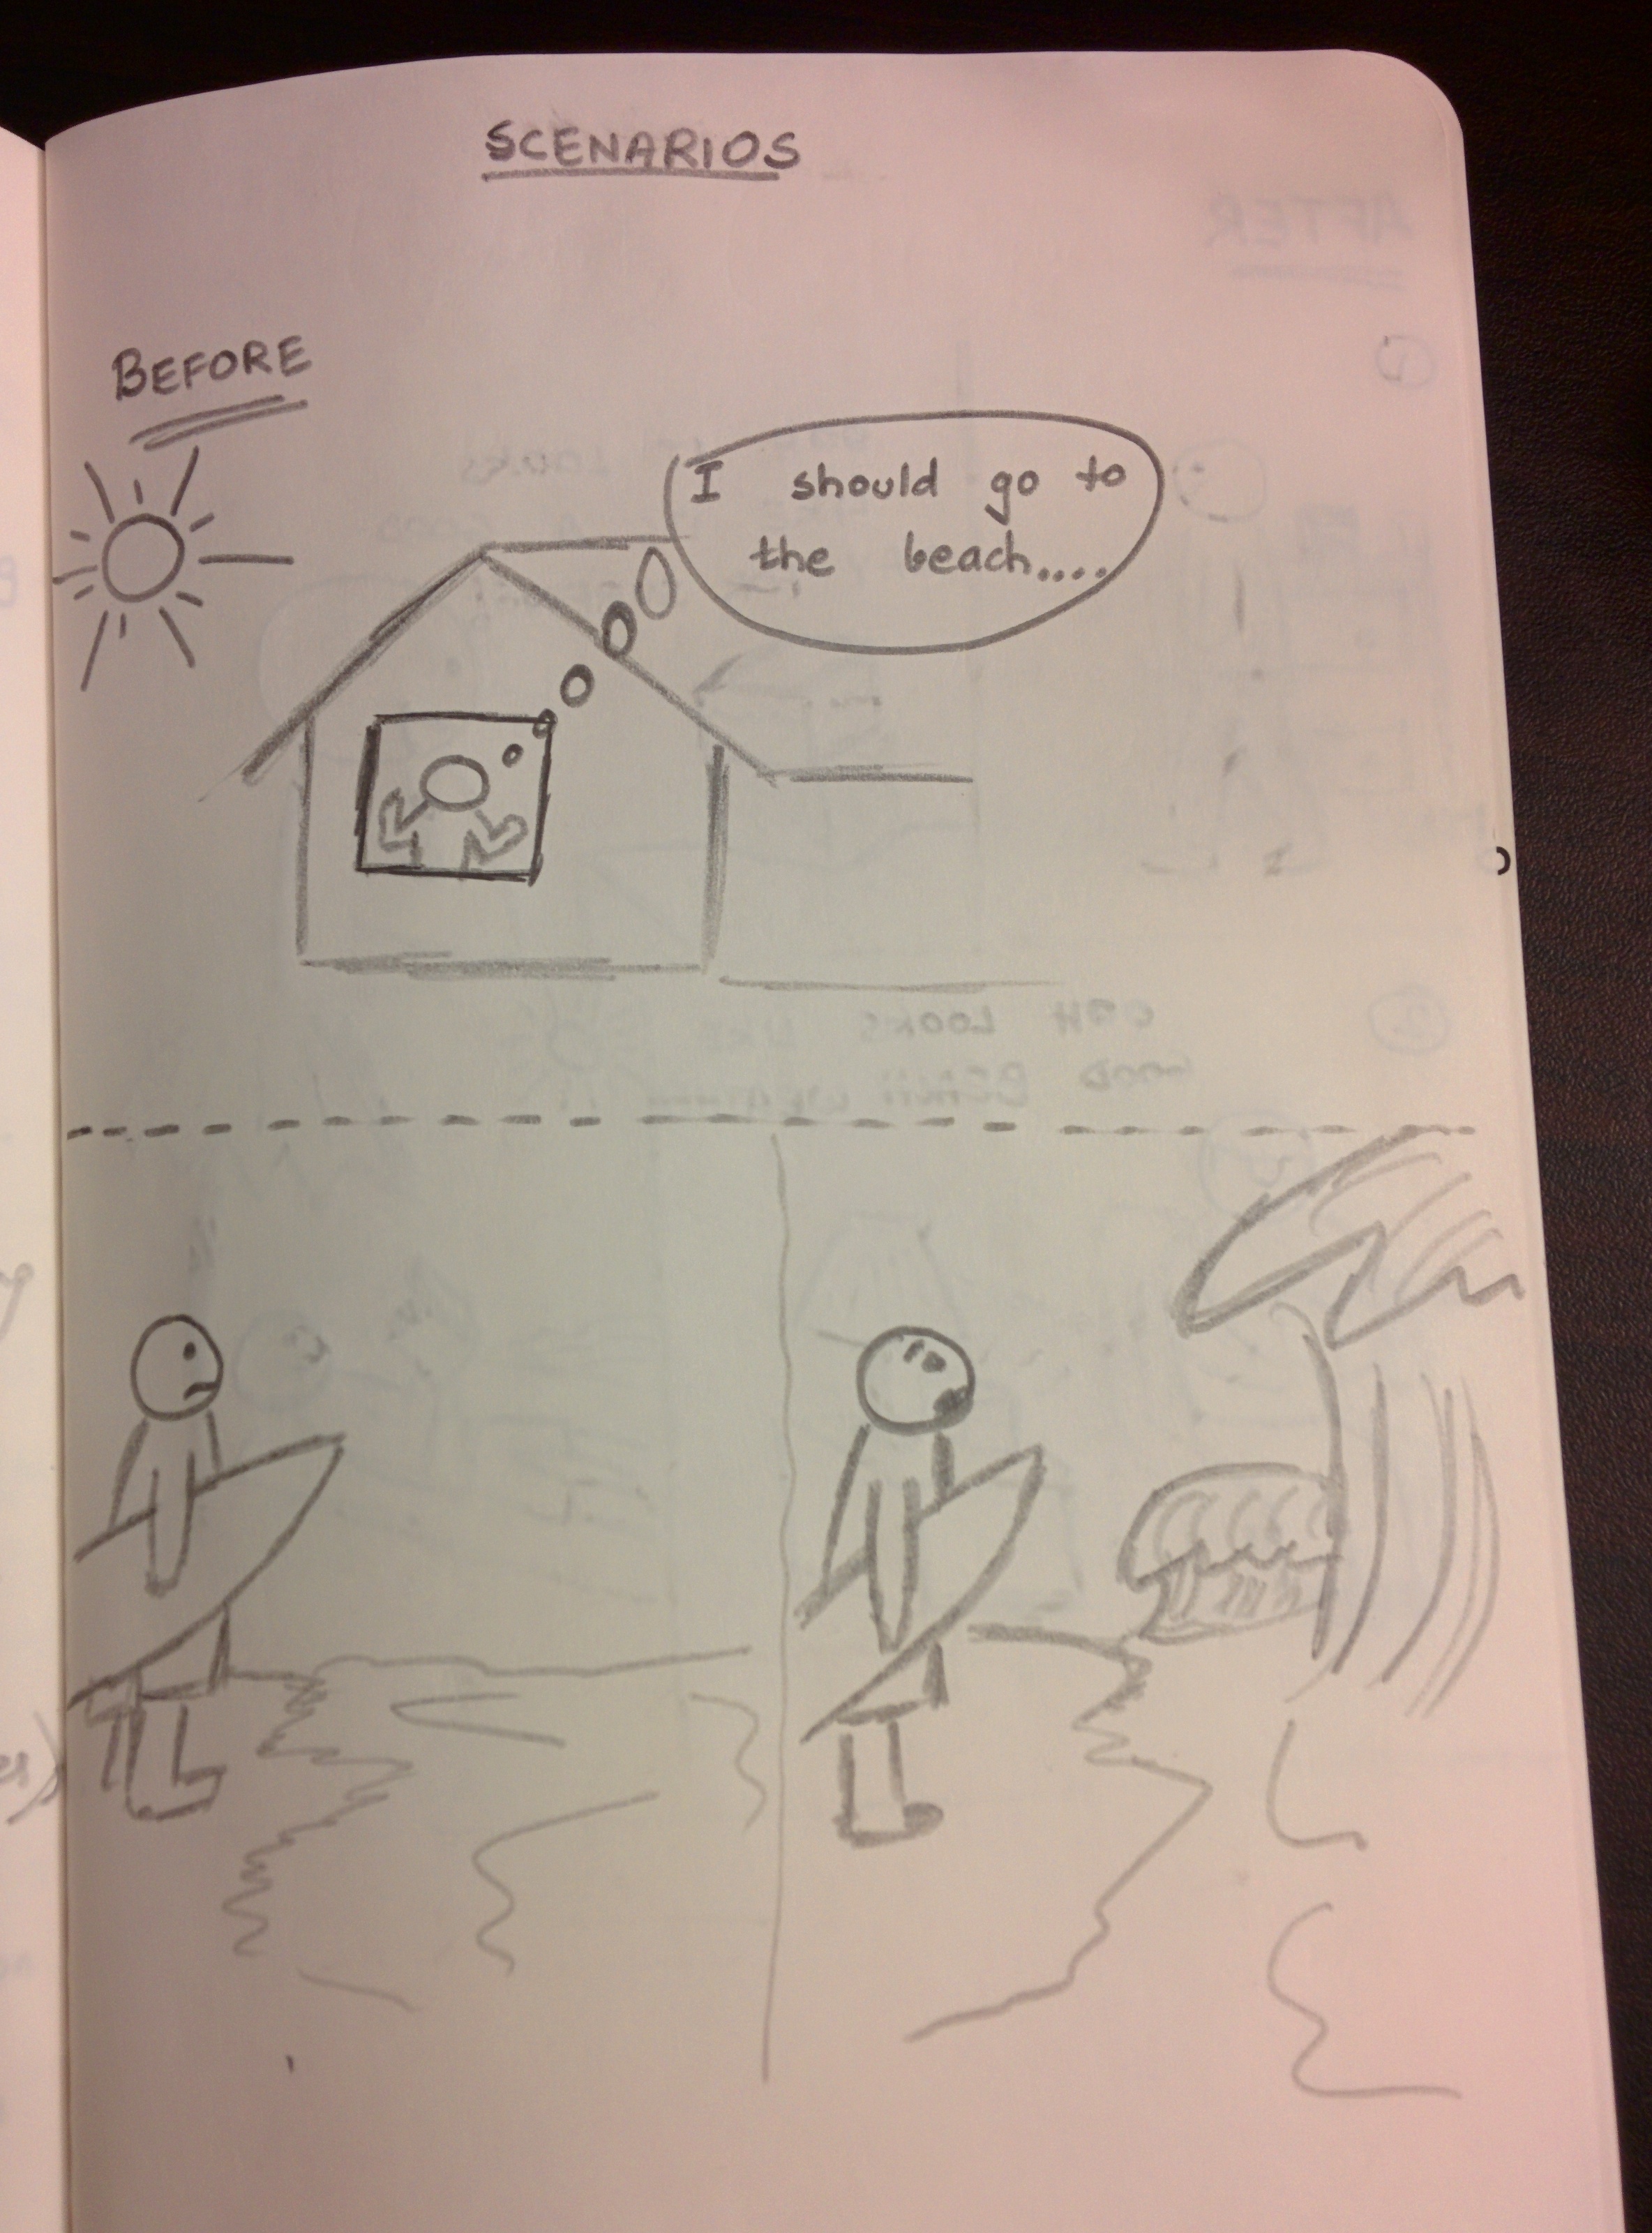 SCENARIOS
BEFORE
I should go to
the beach....